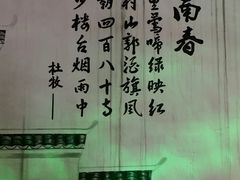 南春
里莺啼绿映红
村山郭酒旗风
朝四百八十寺
少楼台烟雨中
杜牧